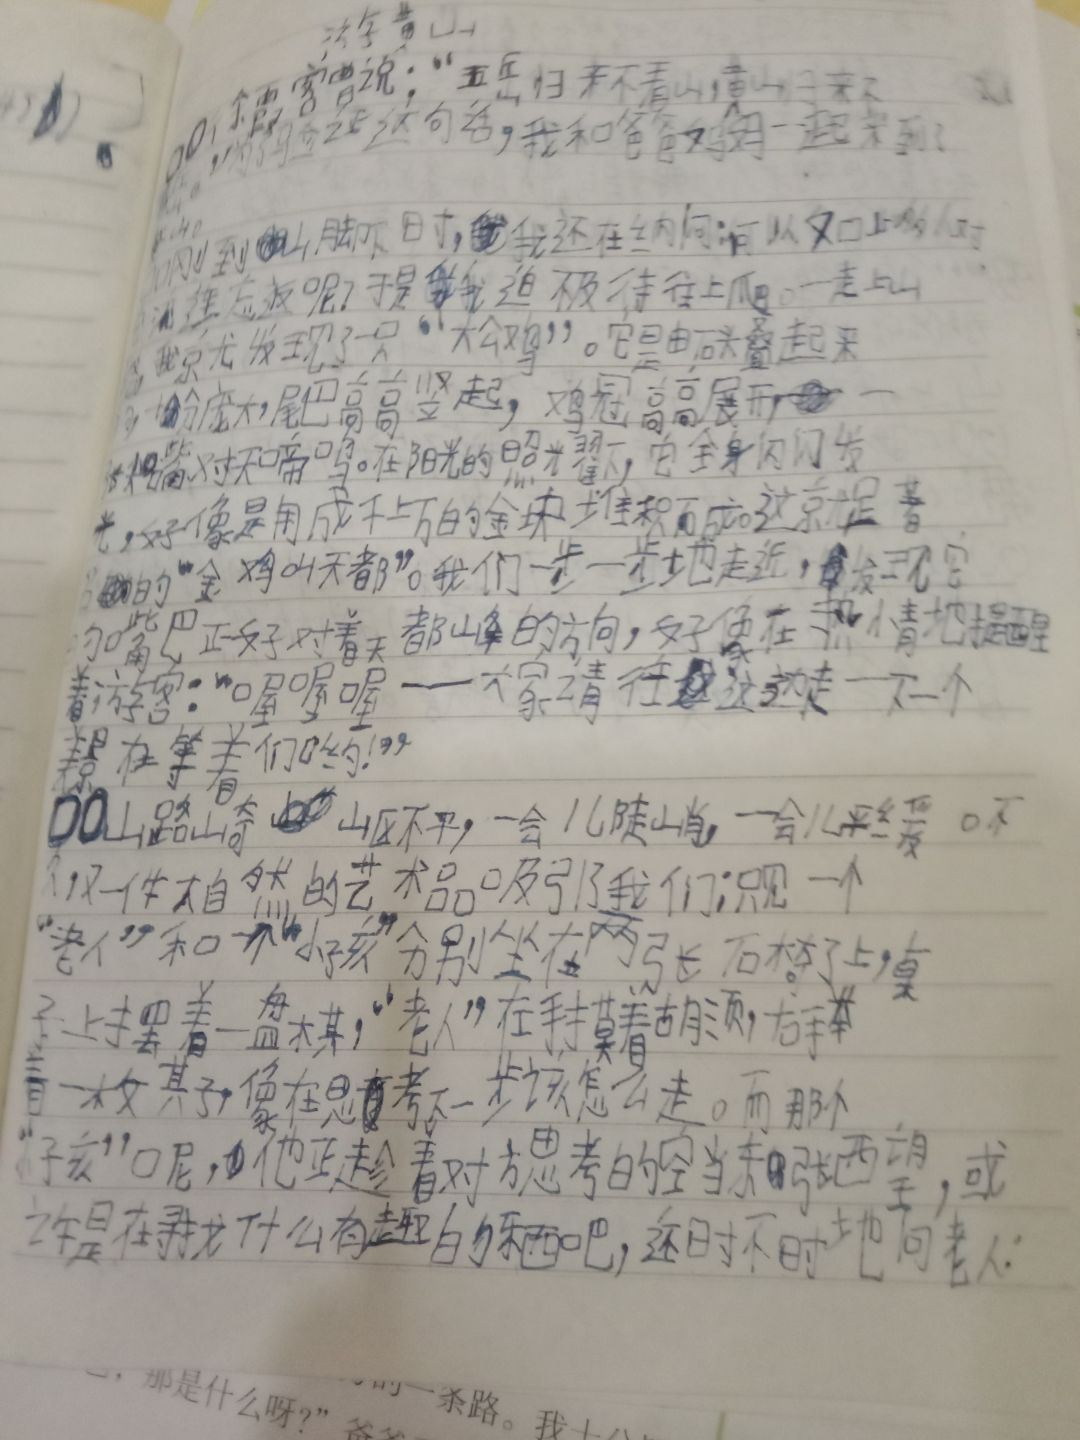 游黄山
徐霞客曾说：“五岳归来不看山，黄山归来不
这句话，我和爸爸妈妈一起来到了
刚到山脚下时，我还在纳闷：何以
流连忘返呢？于是我迫不极待往上爬。一走上山
我就发现了一只“大公鸡”。它是由石头叠起来
十分庞大，尾巴高高竖起，鸡冠高高展形，一
张嘴对天啼鸣。在阳光的照光耀下，它全身闪闪发
光，好像是用成千上万的金块堆积而成。这就是著
的“金鸡叫天都”。我们一步一步地走近，发现它
的嘴巴正好对着天都山峰的方向，好像在热情地提醒
着游客：“喔喔喔——大家请往这边走——下一个
景在等着们哟！”
山路崎岖不平，一会儿陡峭，一会儿平缓。不
久，又一件大自然的艺术品吸引了我们；只见一个
“老人”和一个“小孩”分别坐在两张长石椅子上，桌
子上摆着一盘棋，“老人”左手摸着胡须，右手举
着一枚其子，像在思考下一步该怎么走。而那个
“子孩”呢，他正趁着对方思考的空当东张西望，或
许是在寻找什么有趣的东西吧，还时不时地向老人
那是什么呀？”爸爸
的一条路。我十分